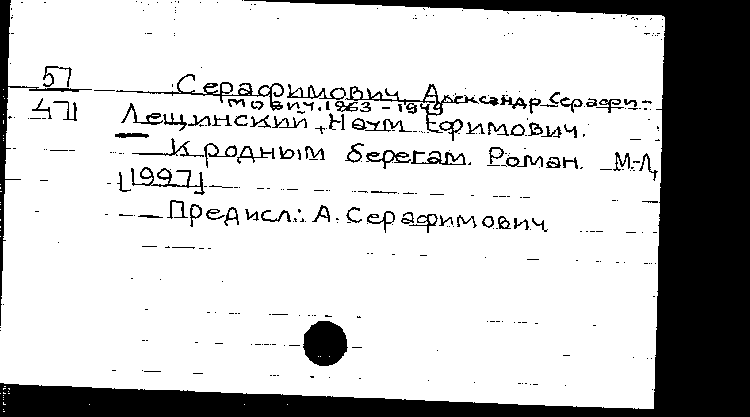 57
471
Серафимович Александр Серафи-
мович. 1863-1949
Лещинский, Наум Ефимович.
К родным берегам. Роман. М-Л,
[1997]
Предисл.: А. Серафимович